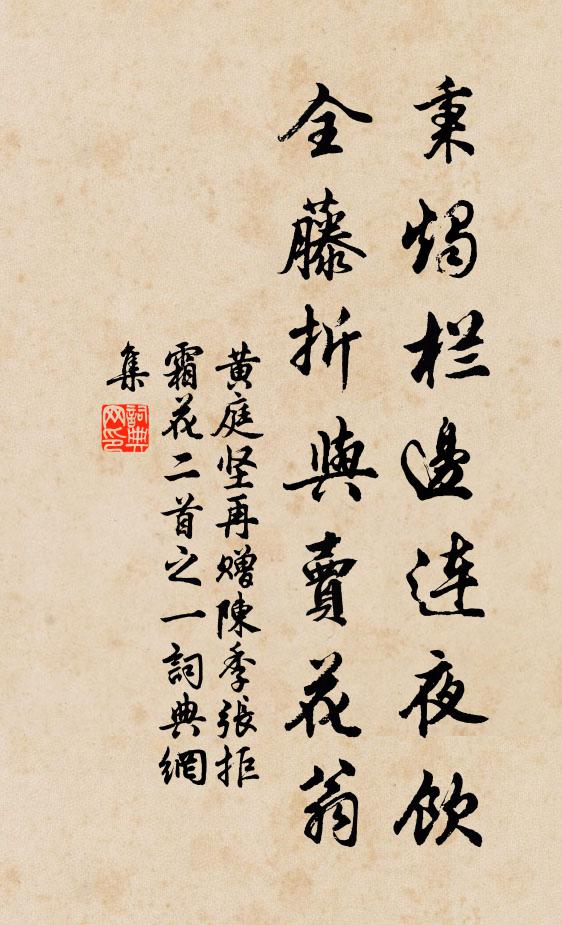 秉燭栏邊連夜飲
全藤折與賣花翁
黄庭坚再贈陳季張拒
霜花二首之一詞典網
集
詞典网印